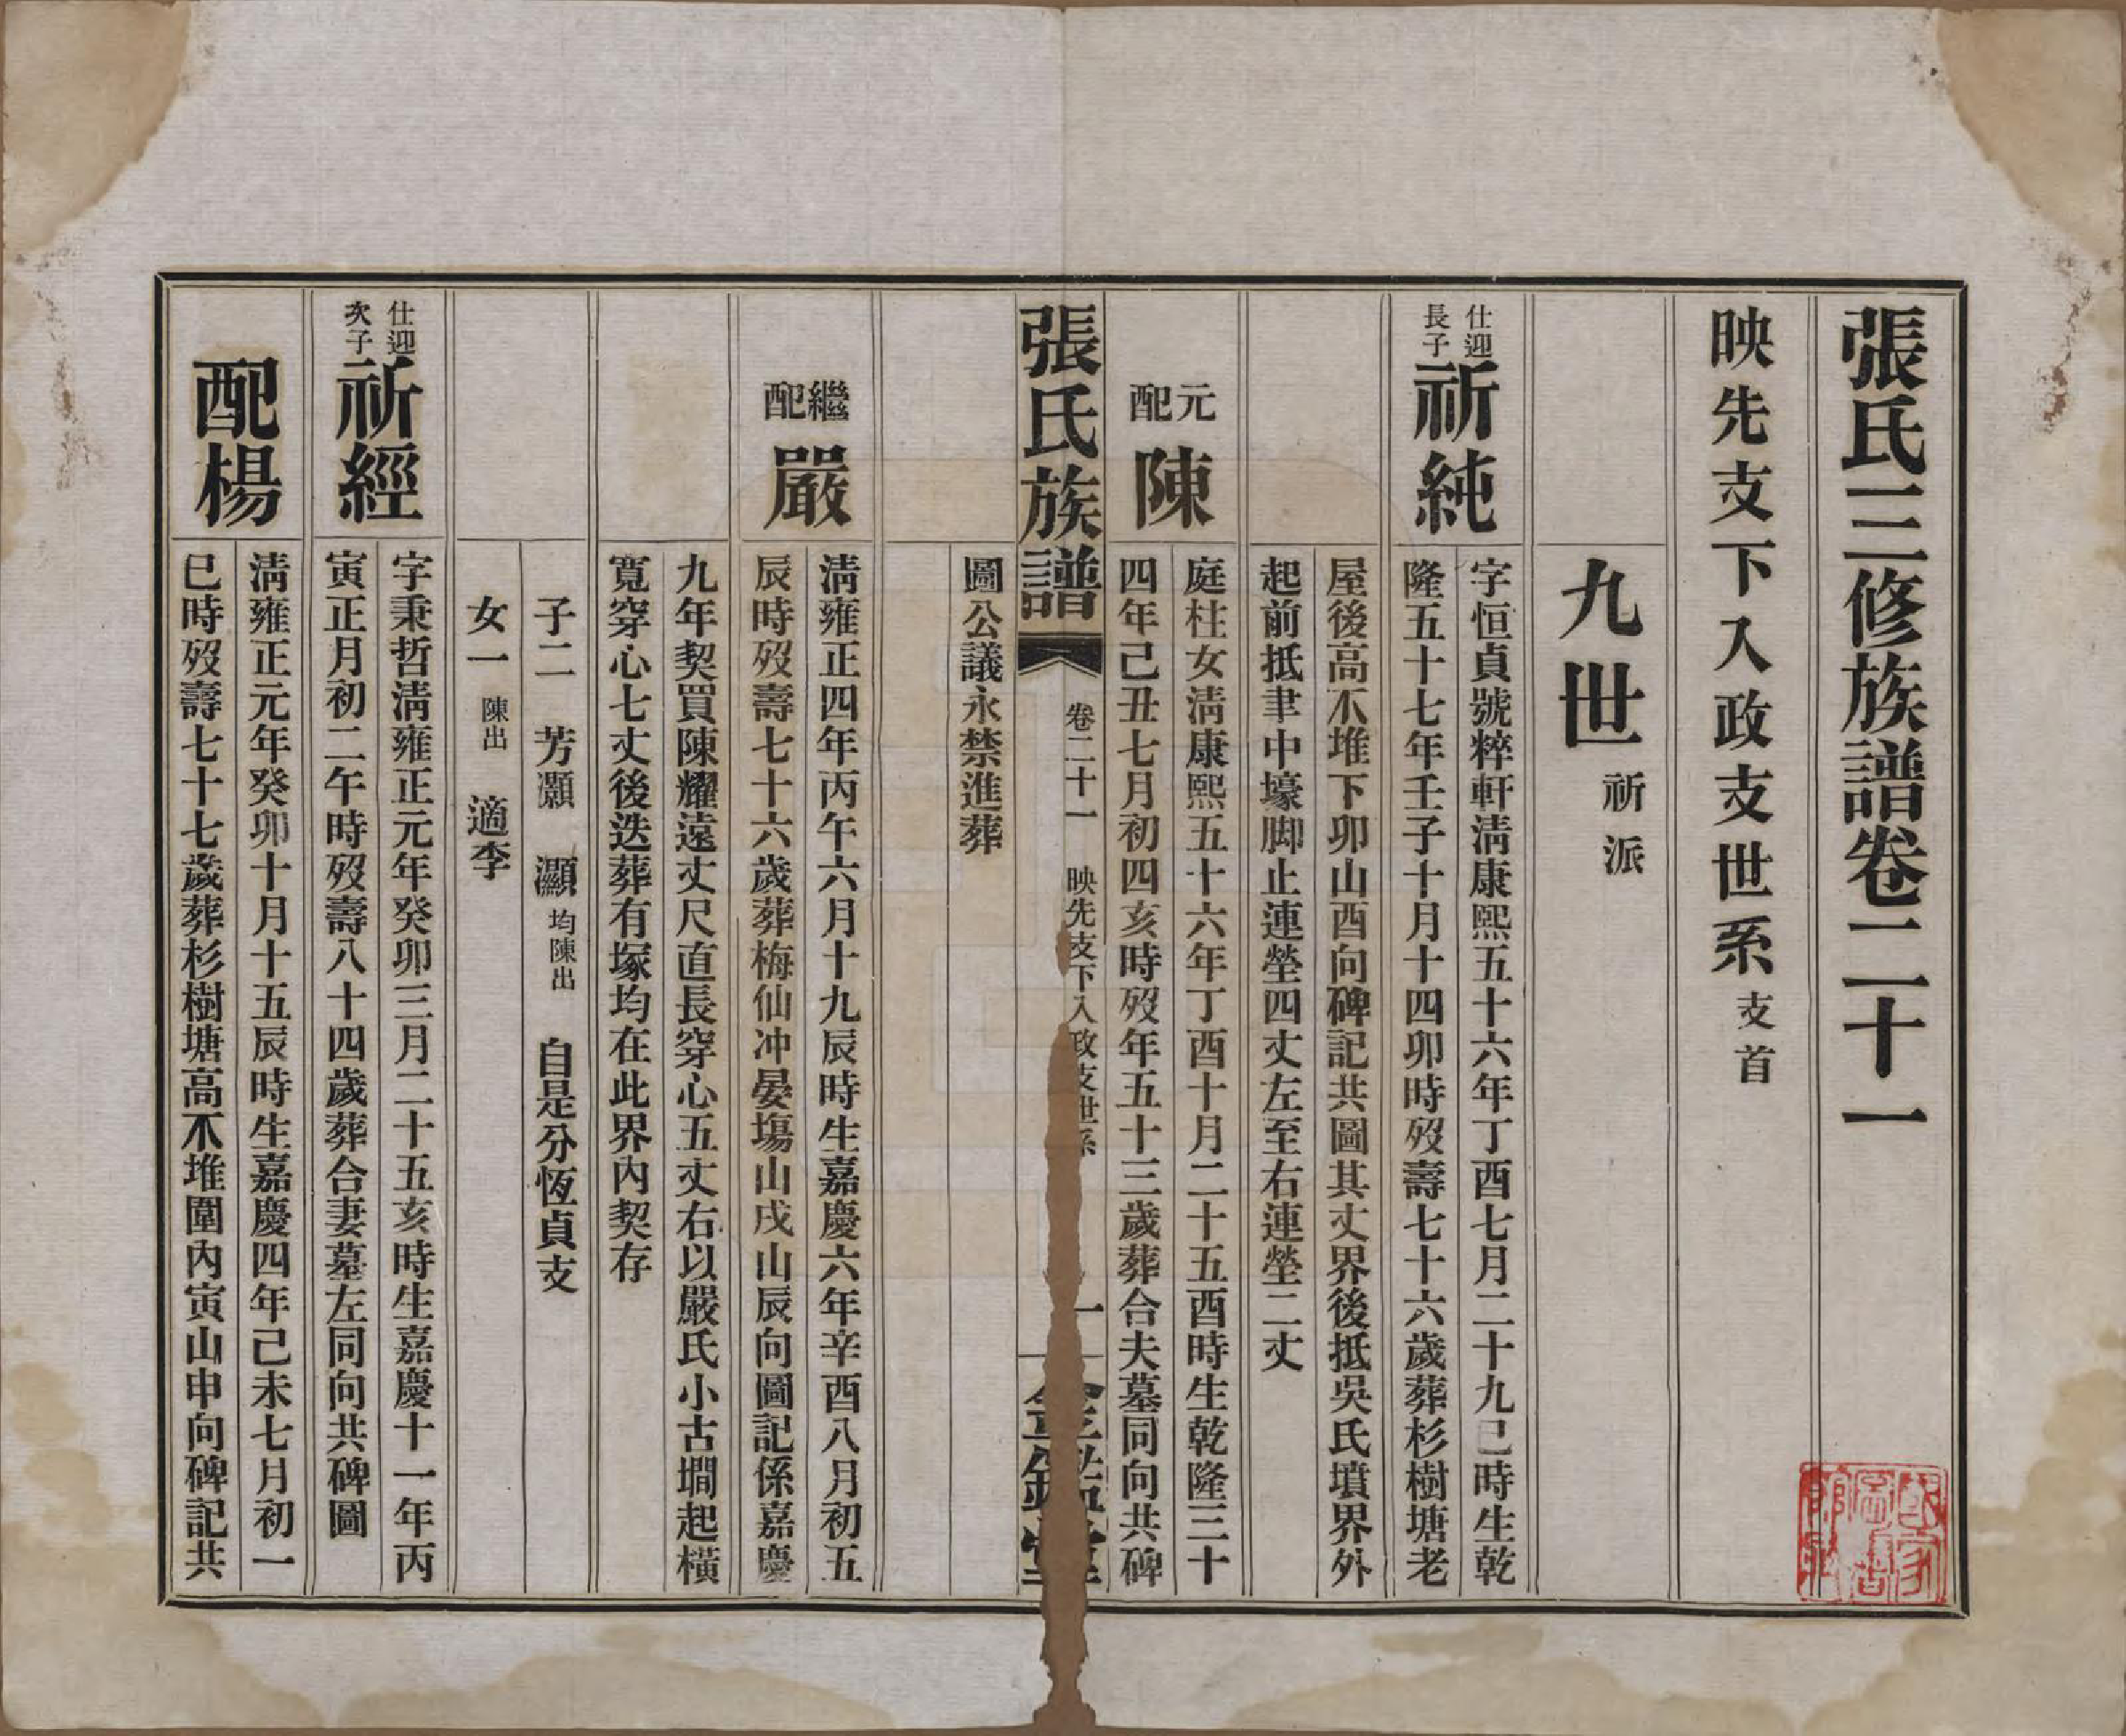 張氏三修族譜卷二十一
映先支下入政支世系支首
九世祈派
仕迎長子
祈純
字恒貞號粹軒淸康熙五十六年丁酉七月二十九巳時生乾
隆五十七年壬子十月十四卯時歿壽七十六歲葬杉樹塘老
屋後高不堆下卯山酉向碑記共圖其丈界後抵吳氏墳界外
起前抵聿中壕脚止連塋四丈左至右連塋二丈
元配
陳
庭柱女淸康熙五十六年丁酉十月二十五酉時生乾隆三十
四年己丑七月初四亥時歿年五十三歲葬合夫墓同向共碑
圖公議永禁進葬
張氏族譜
卷二十一
映先支下入政支世系
一
金鑑堂
繼配
嚴
淸雍正四年丙午六月十九辰時生嘉慶六年辛酉八月初五
辰時歿壽七十六歲葬梅仙冲晏塲山戌山辰向圖記係嘉慶
九年契買陳耀遠丈尺直長穿心五丈右以嚴氏小古墹起橫
寬穿心七丈後迭葬有塚均在此界內契存
子二 芳灝 灝 均陳出 自是分恆貞支
女一 陳出 適李
仕迎次子
祈經
字秉哲淸雍正元年癸卯三月二十五亥時生嘉慶十一年丙
寅正月初二午時歿壽八十四歲葬合妻墓左同向共碑圖
配楊
淸雍正元年癸卯十月十五辰時生嘉慶四年己未七月初一
巳時歿壽七十七歲葬杉樹塘高不堆圍內寅山申向碑記共